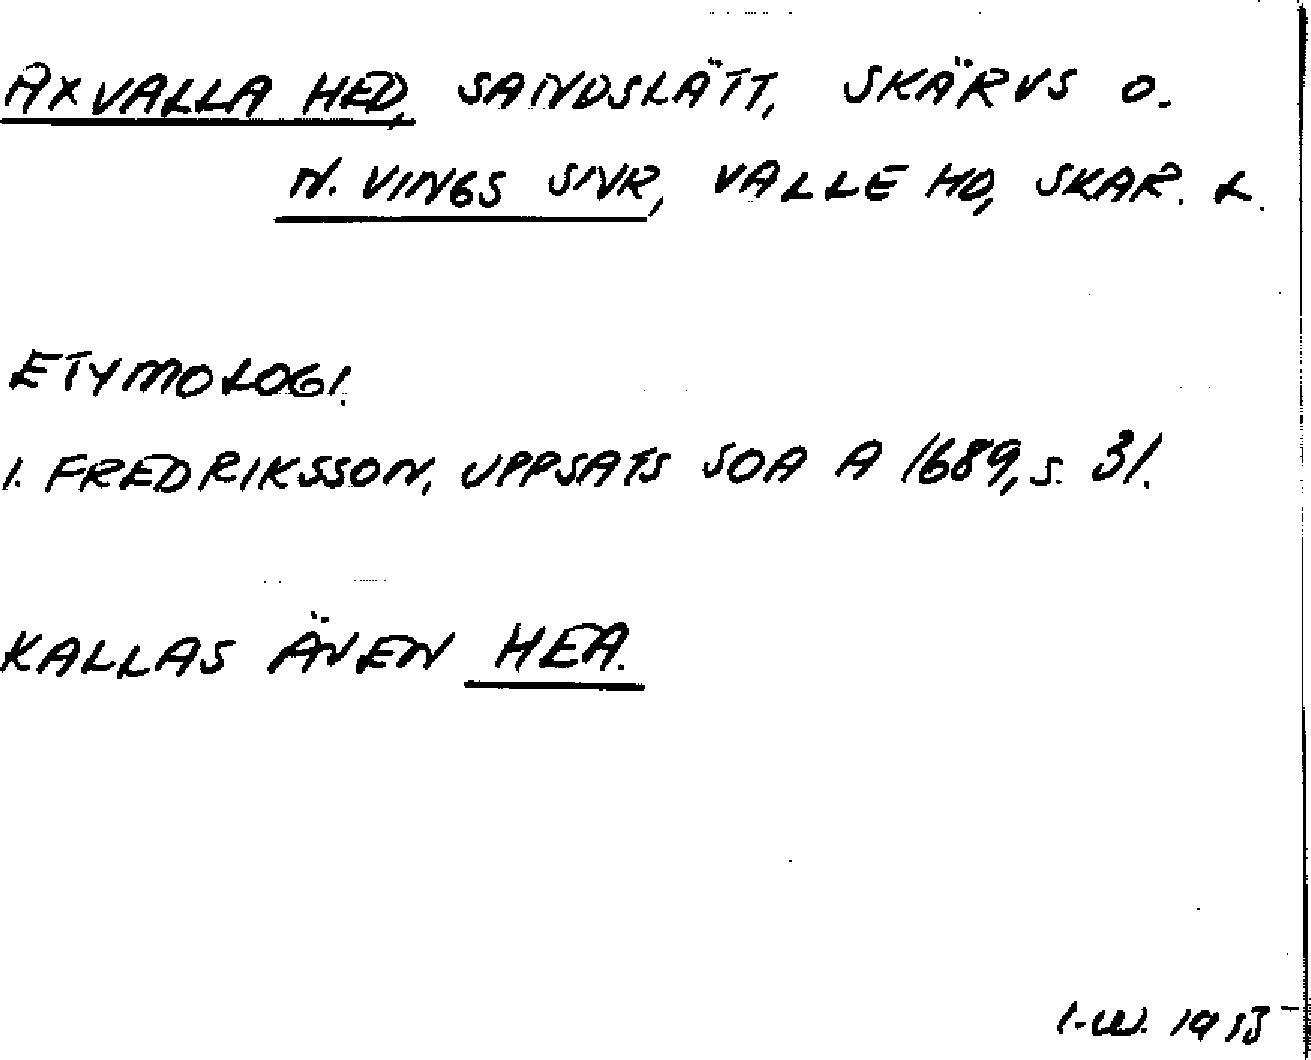 AXVALLA HED, SANDSLÄTT, SKÄRVS O.
N. VINGS SNR, VALLE HD, SKAR. L.
ETYMOLOGI.
I. FREDRIKSSON, UPPSATS SOA A 1689, S. 31.
KALLAS ÄVEN HEA.
I-W.